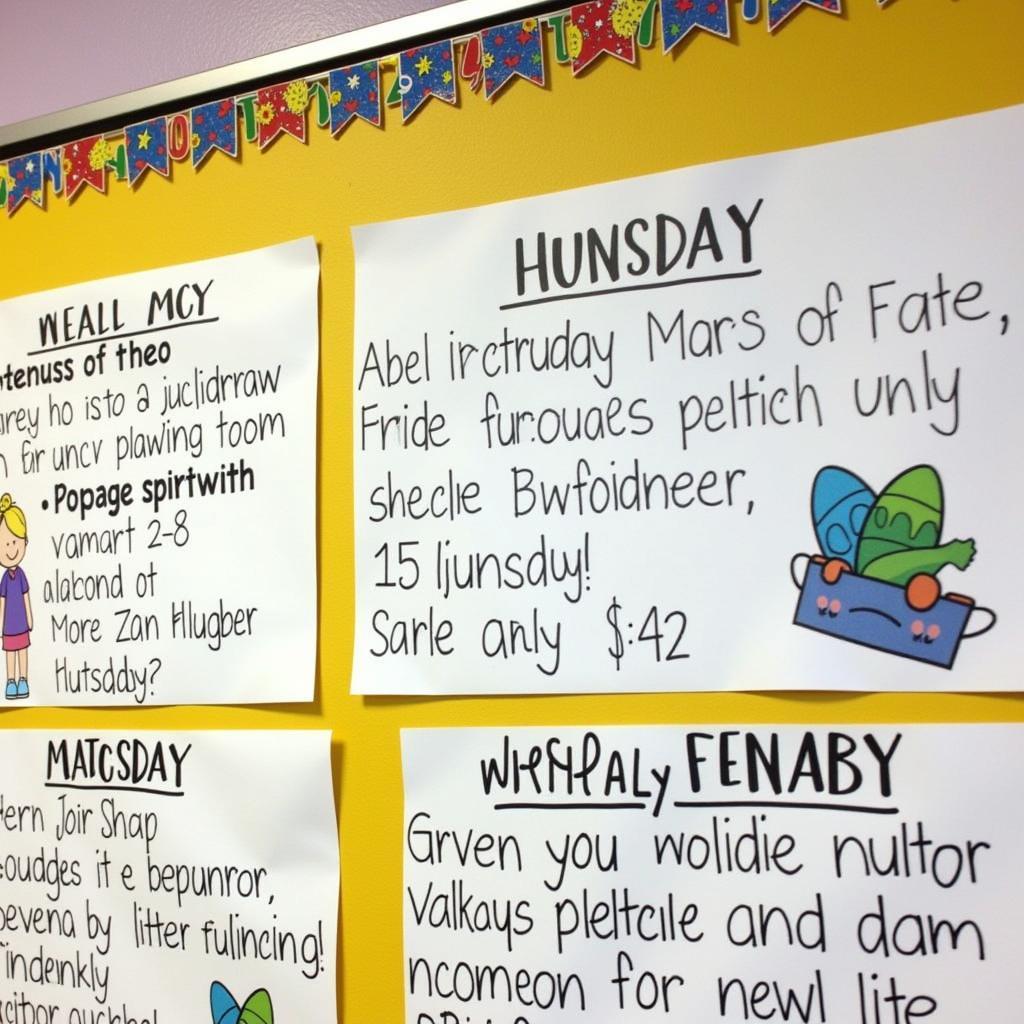 WEALL MCY
tenuss of theo
urey ho isto a juclidrraw
n for uncv plawing toom
• Popage spirtwith
vamart 2-8
alabond ot
More Zan Hlugber
Hutsddy?
HUNSDAY
Abel irctruday Mars of Fate,
Fride furouaes peltich unly
sheclie Bwfoidneer,
15 ljunsduy!
Sarle anly $:42
MATCSDAY
ern Joir Shap
oudges it e bepunror,
evena by litter fulincing!
indenkly
FENABY
Grven you wolidie nultor
Valkays pleltcile and dam
ncomeon for newl lite